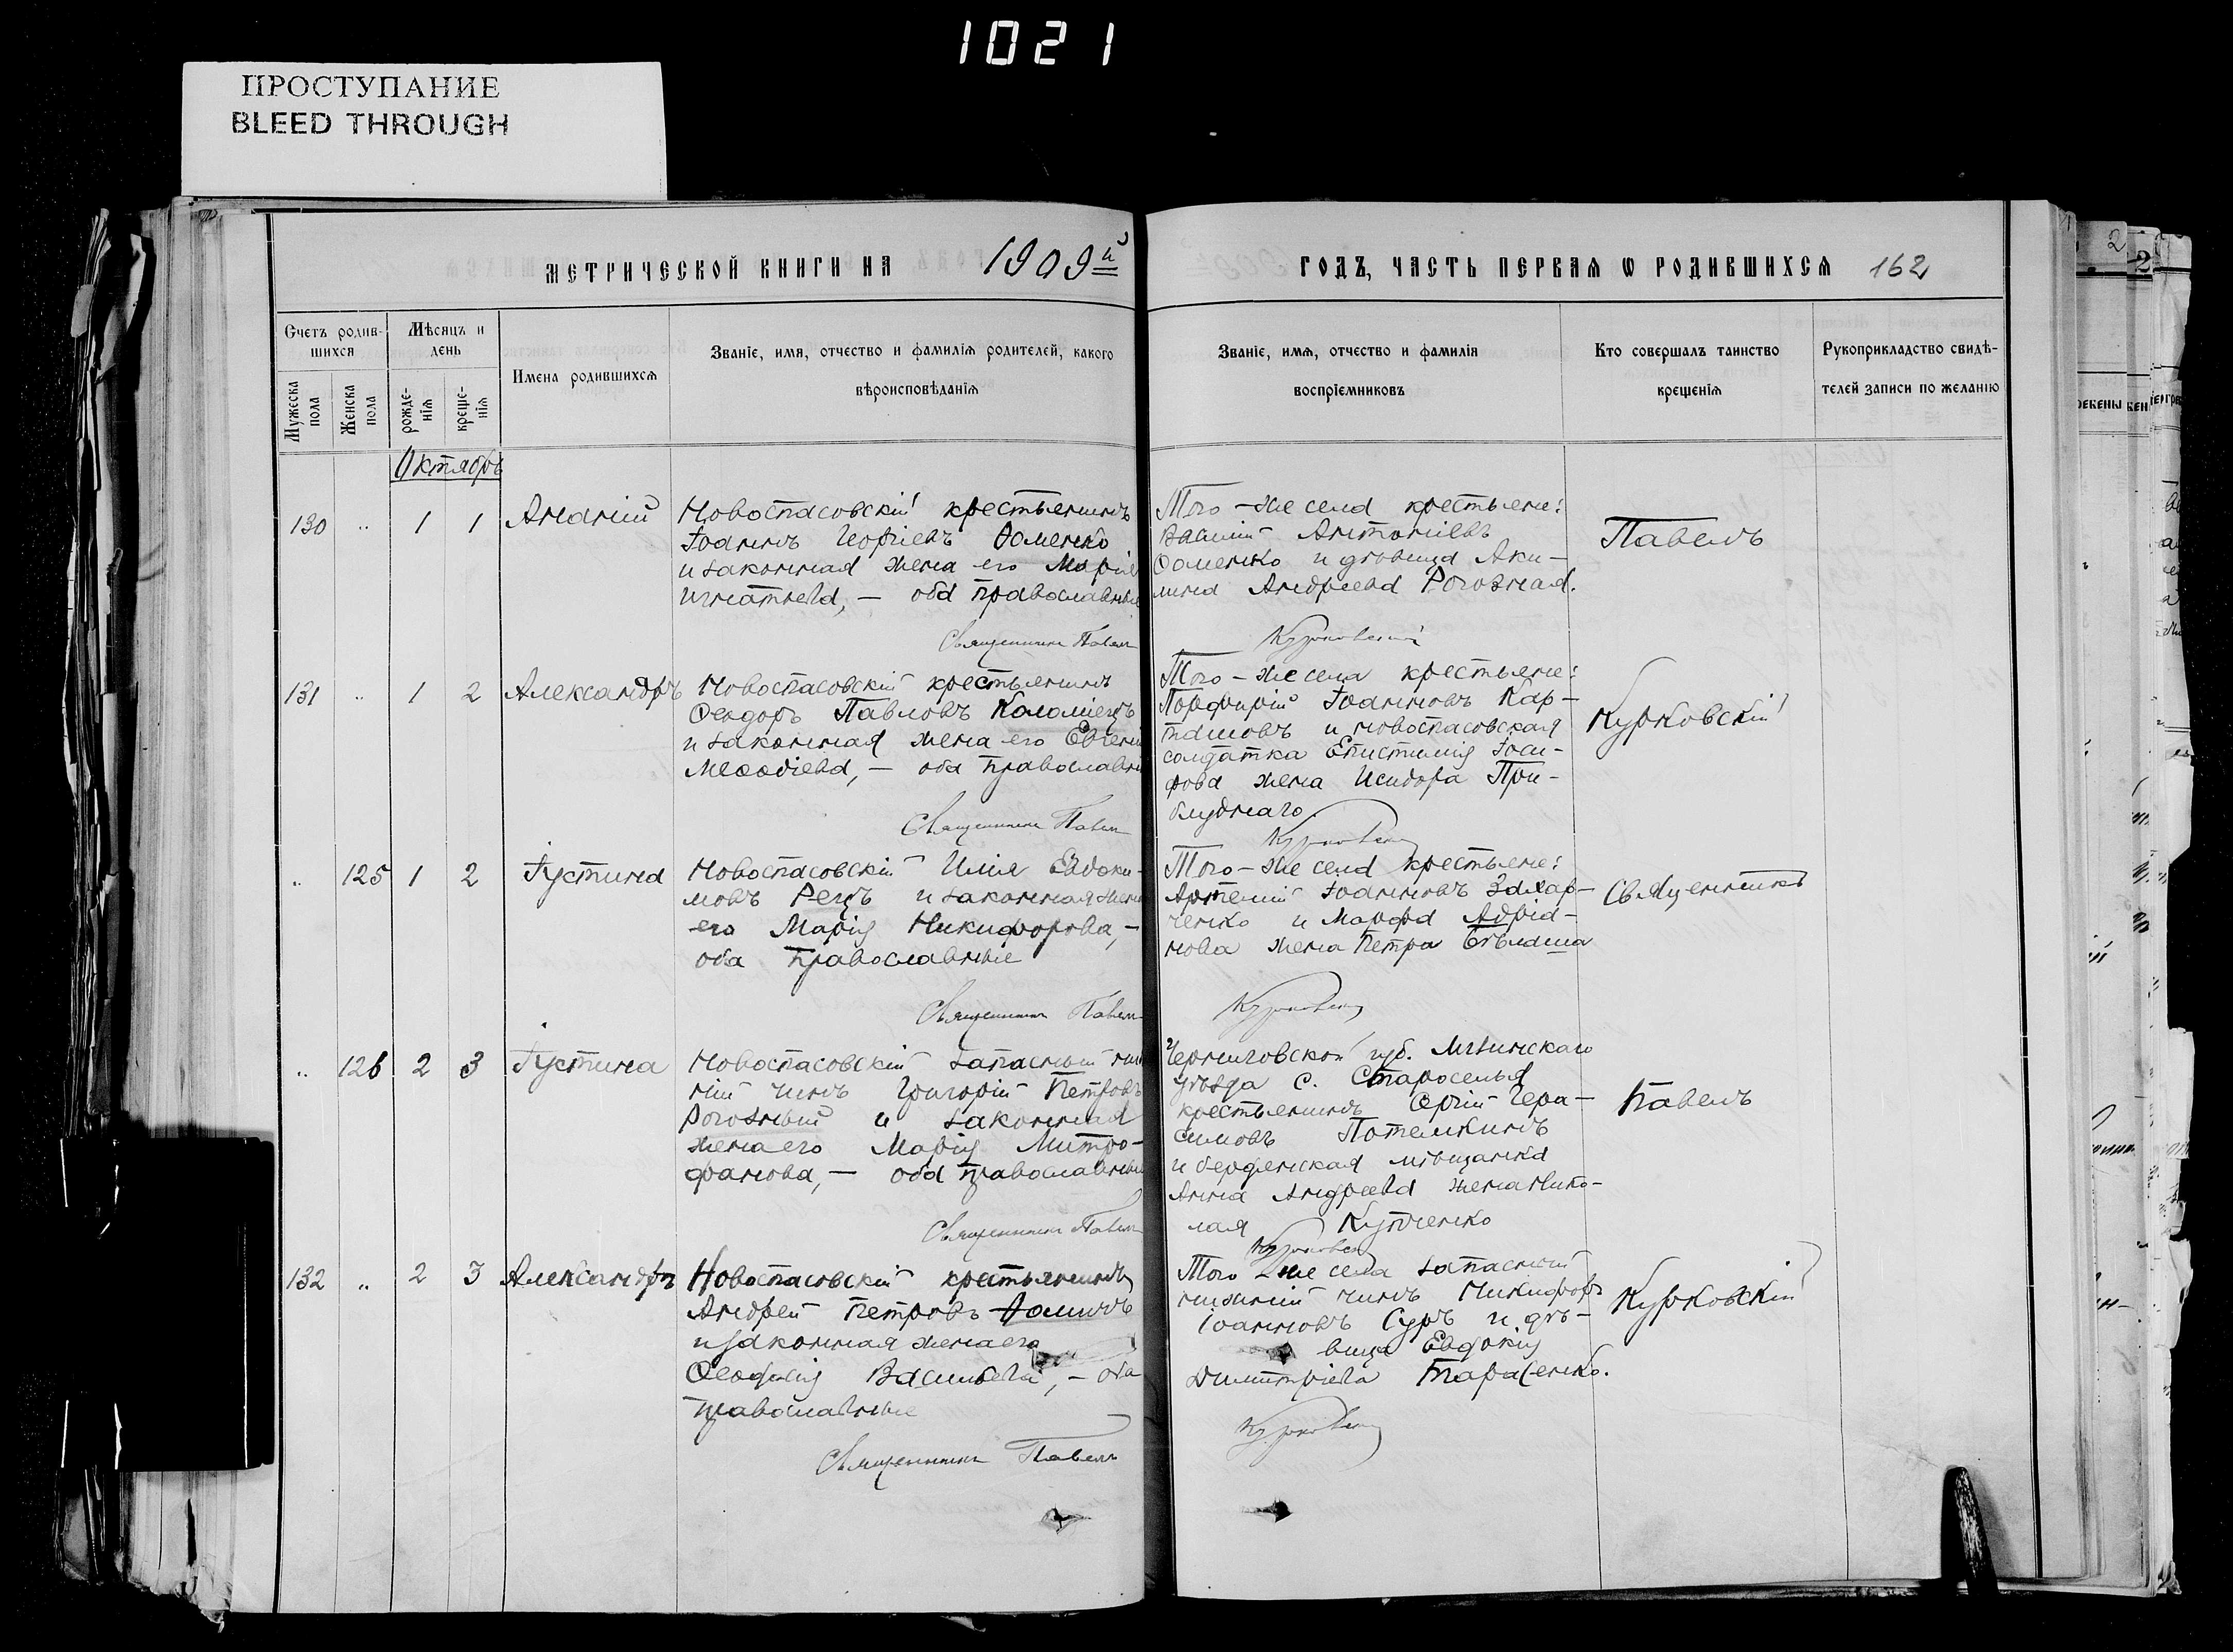 1021
ПРОСТУПАНИЕ
BLEED THROUGH
МЕТРИЧЕСКОЙ КНИГИ НА 1909й
ГОДЪ, ЧАСТЬ ПЕРВАЯ Ѡ РОДИВШИХСЯ 162
Счетъ родив-
шихся
Мужеска
пола
Женска
пола
Мѣсяцъ и
день
рожде-
нія
креще-
нія
Имена родившихся
Званіе, имя, отчество и фамилія родителей, какого
вѣроисповѣданія
Званіе, имя, отчество и фамилія
воспріемниковъ
Кто совершалъ таинство
крещенія
Рукоприкладство свидѣ-
телей записи по желанію
Октябрь
130 " 1 1 Ананій
Новоспасовскій крестьянинъ
Іоаннъ Георгіевъ Ѳоменко
и законная жена его Марія
Игнатьева, — оба православные
Священникъ Павелъ
Того-же села крестьяне:
Василій Антоніевъ
Ѳоменко и дѣвица Аки-
лина Андреева Рогозная.
Курковскій
Павелъ
131 " 1 2 Александръ
Новоспасовскій крестьянинъ
Ѳеодоръ Павловъ Коломіецъ
и законная жена его Евгенія
Меѳодіева, — оба православные
Священникъ Павелъ
Того-же села крестьяне:
Порфирій Іоанновъ Кар-
ташовъ и новоспасовская
солдатка Епистимія Іоси-
фова жена Исидора При-
блуднаго.
Курковскій
Курковскій
" 125 1 2 Іустина
Новоспасовскій Илія Евдоки-
мовъ Рецъ и законная жена
его Марія Никифорова, —
оба православные
Священникъ Павелъ
Того-же села крестьяне:
Артемій Іоанновъ Захар-
ченко и Марфа Адріа-
нова жена Петра Бѣлаша
Курковскій
Священникъ
" 126 2 3 Іустина
Новоспасовскій запасный ниж
ній чинъ Григорій Петровъ
Рогозный и законная
жена его Марія Митро-
фанова, — оба православные
Священникъ Павелъ
Черниговской губ. Мглинскаго
уѣзда с. Староселья
крестьянинъ Сергій Гера-
симовъ Потемкинъ
и бердянская мѣщанка
Анна Андреева жена Нико-
лая Купченко
Курковскій
Павелъ
132 " 2 3 Александръ
Новоспасовскій крестьянинъ
Андрей Петровъ Ѳоминъ
и законная жена его
Ѳеодосія Васильева, — оба
православные
Священникъ Павелъ
Того-же села запасный
нижній чинъ Никифоръ
Іоанновъ Суръ и дѣ-
вица Евдокія
Димитріева Тарасенко.
Курковскій
Курковскій